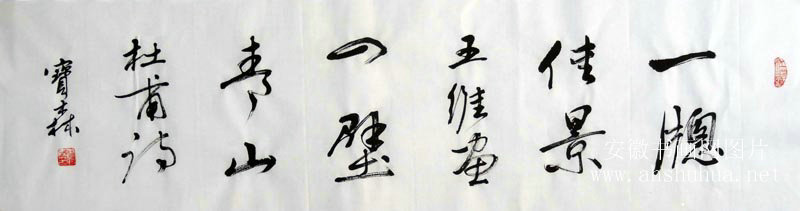 一窻
佳景
王维画
四壁
青山
杜甫诗
寶森
安徽书画网图片
www.anshuhua.net